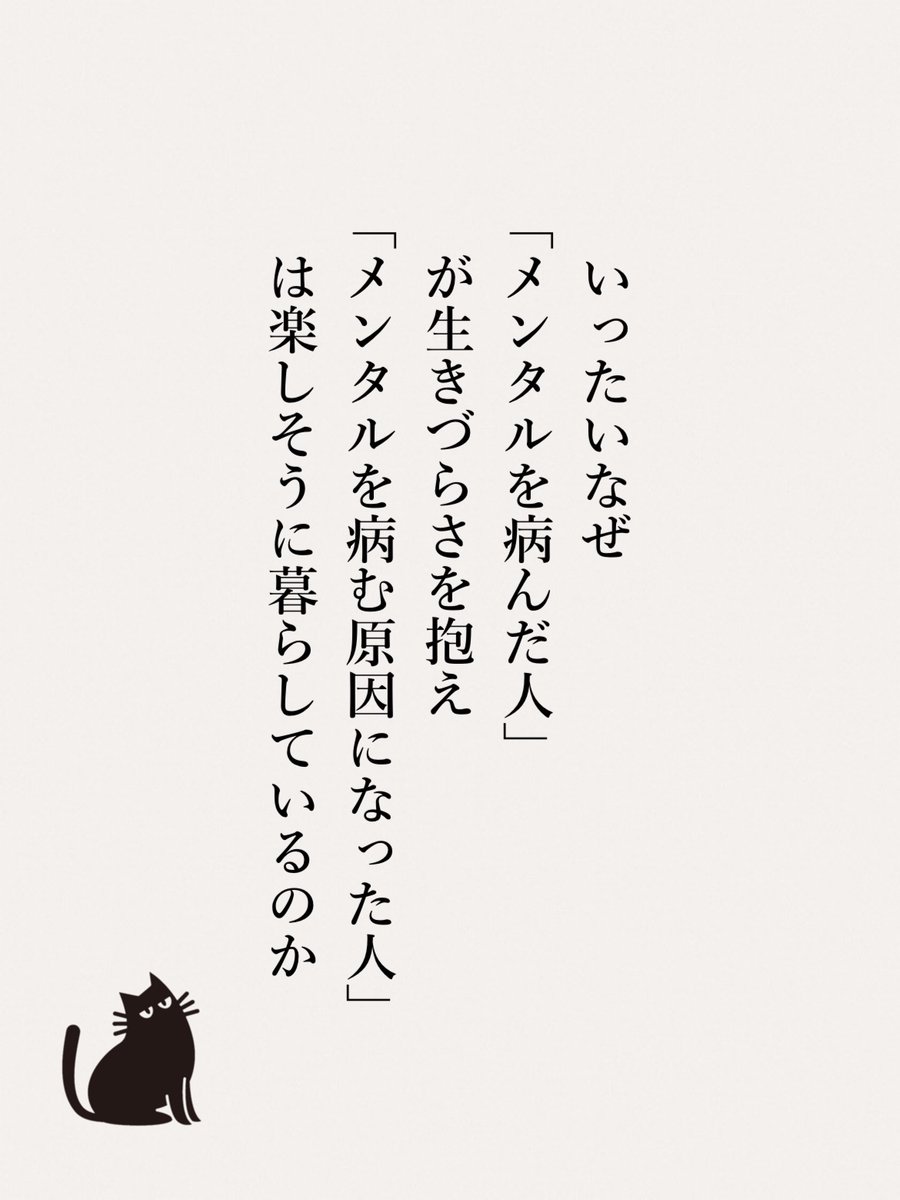 いったいなぜ
「メンタルを病んだ人」
が生きづらさを抱え
「メンタルを病む原因になった人」
は楽しそうに暮らしているのか